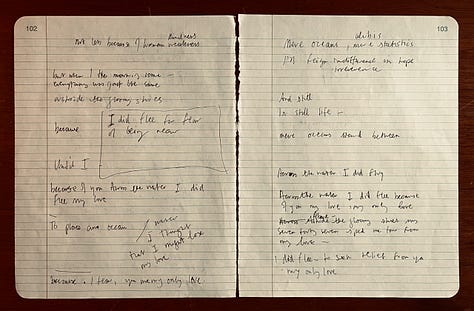 102
not less because of human weakness
but when I the morning come
everything was just the same
outside the gloomy skies
because
I did flee for fear
of being near
Until I
because of you across the water I did
flee my love
To place an ocean
never
I thought
that I might love
my love
because, I fear, you my only love
103
alibis
mere oceans, mere statistics
indifference or hope
irreverence
And still
in still life
mere oceans stand between
Across the water I did fly
Across the water I did flee because
of you my love my only love
the gloomy
seven forty seven sped me far from
my love
I did flee to seek relief from you
my only love